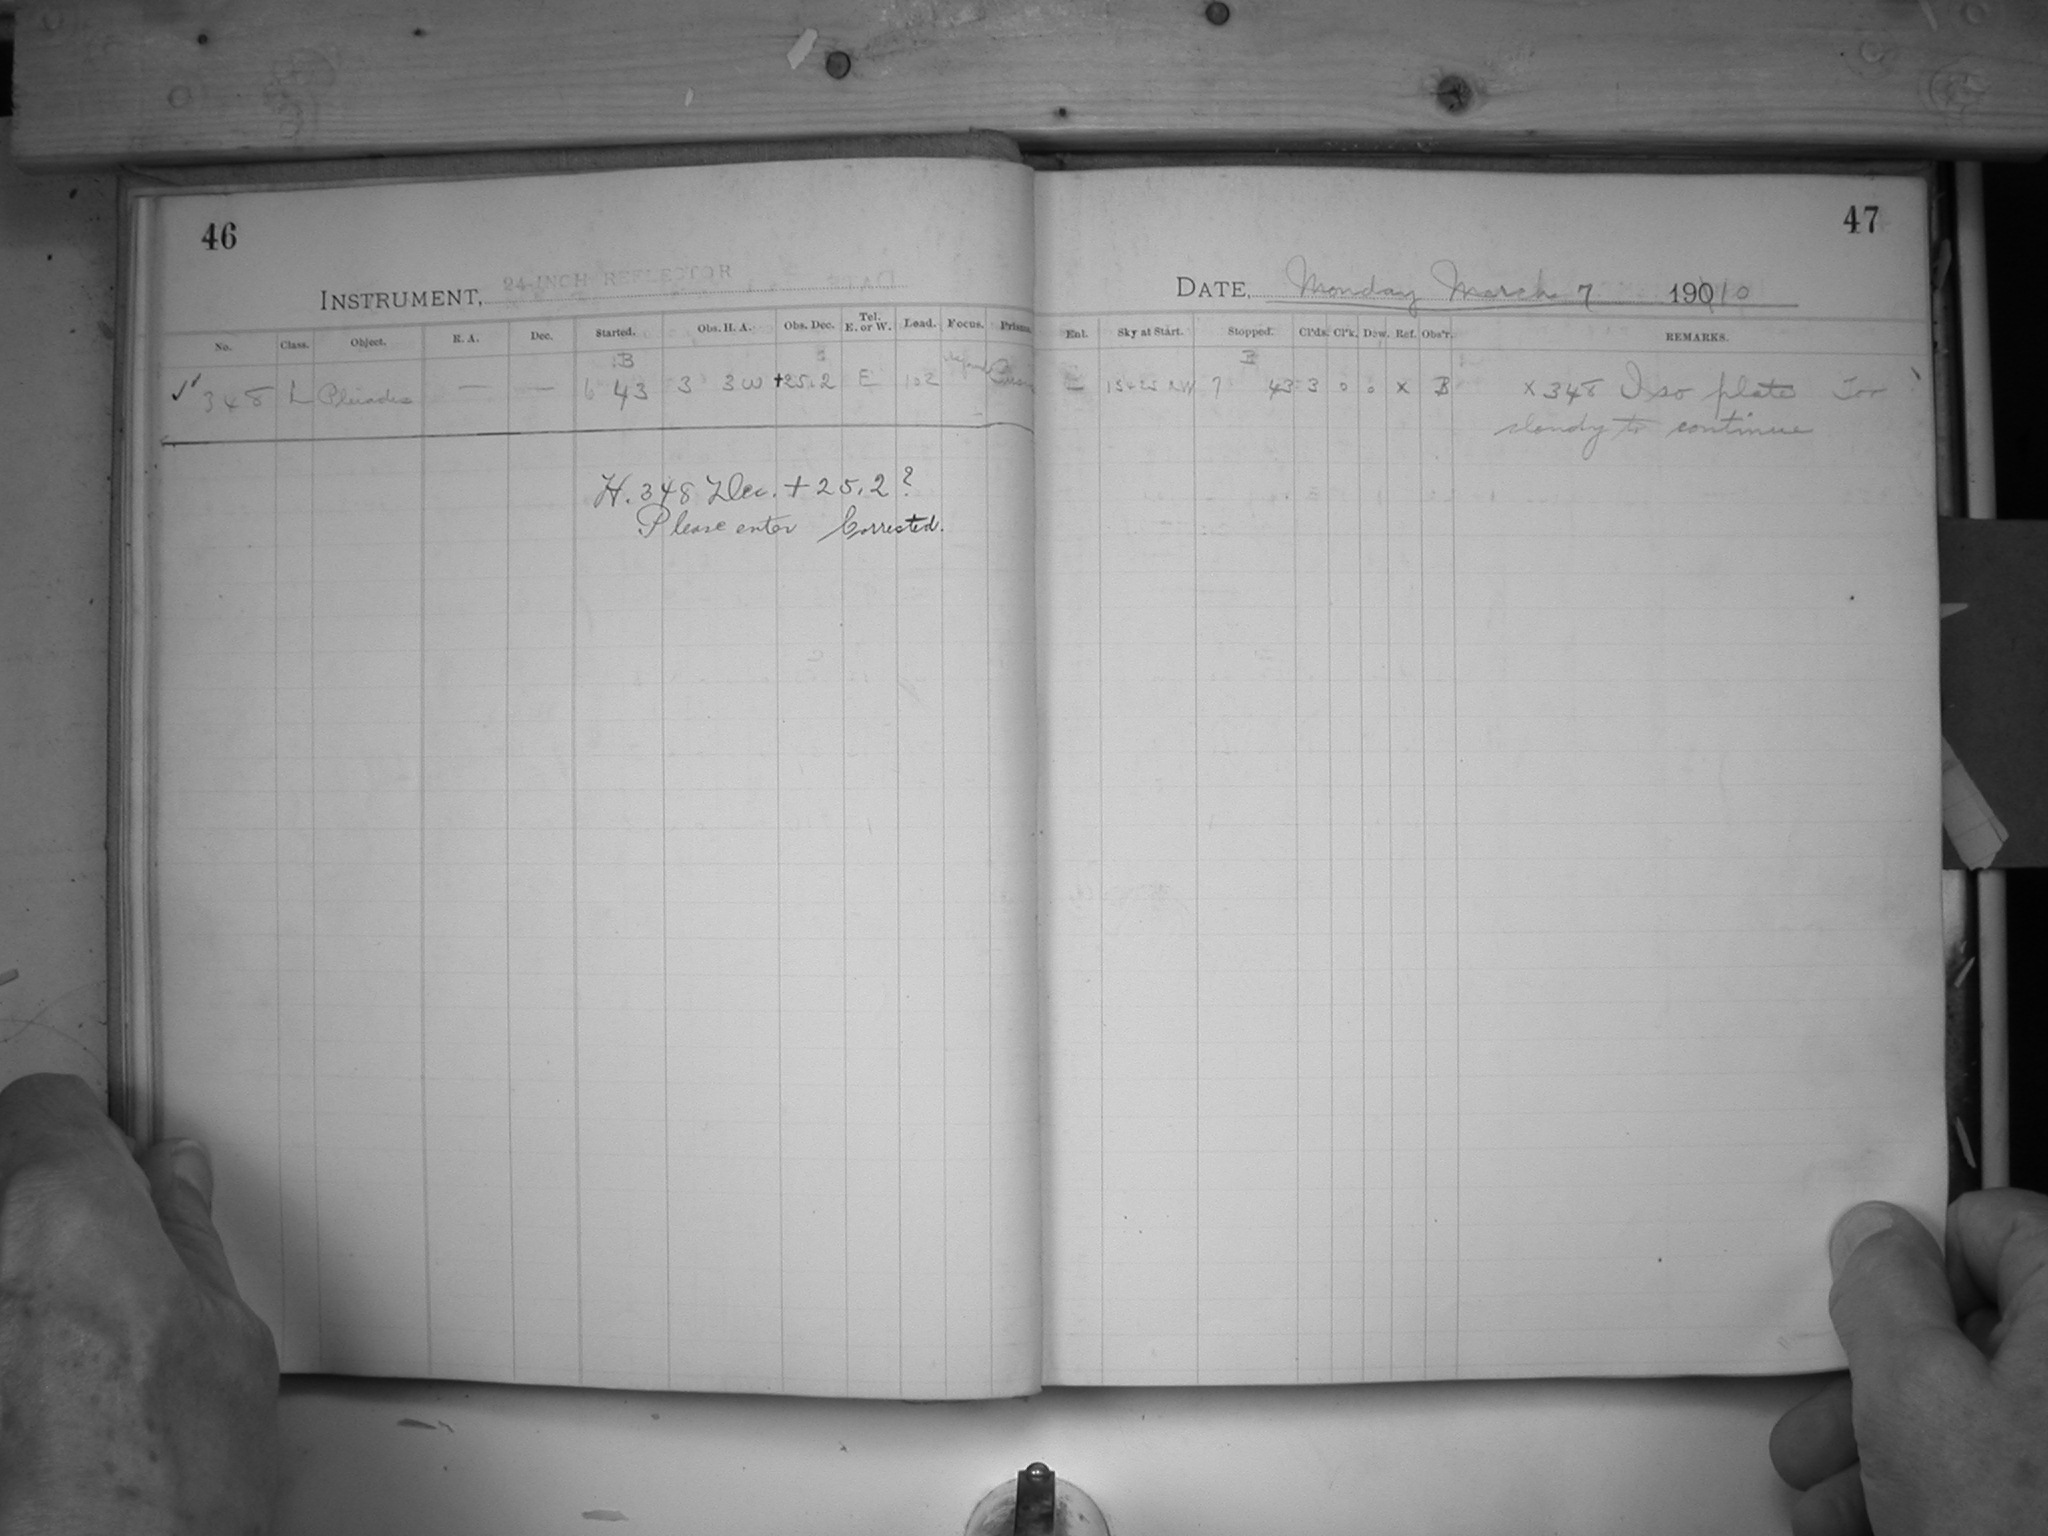 46
INSTRUMENT, 24-INCH REFLECTOR
No. Class. Object. R. A. Dec. Started. Obs. H. A. Obs. Dec. Tel. E. or W. Load. Focus. Prisms.
B
✓ 348 L Pleiades — — 6 43 3 3 W +25.2 E 102
H. 348 Dec. + 25.2?
Please enter Corrected.
47
DATE, Monday March 7 1910
Ent. Sky at Start. Stopped. Cl'ds. Cl'k. Dew. Ref. Obs'r. REMARKS.
B
7 43 3 0 0 x B x 348 Iso plate Too
cloudy to continue